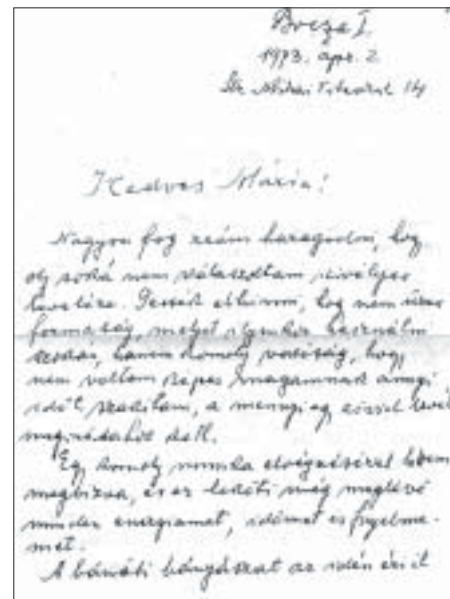 Bocşa I.
1973. ápr. 2
Str. Mihai Viteazul 14
Kedves Mária!
Nagyon fog reám haragudni, hog
oly soká nem válaszoltam szívélyes
levelére. Tessék elhinni, hog nem üres
formaság, melyet ilyenkor használni
szokás, hanem komoly valóság, hog
nem voltam képes magamnak annyi
időt szakítani, a mennyi eg rövid levél
megírásához kell.
Eg komoly munka elvégzésével
megbízva, és ez leköti még meglévő
minden energiámat, időmet és figyelme-
met.
A bánáti bányászat az idén éri el